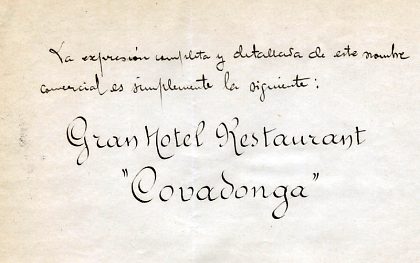 La expresión completa y detallada de este nombre
comercial es simplemente la siguiente:
Gran Hotel Restaurant
"Covadonga"